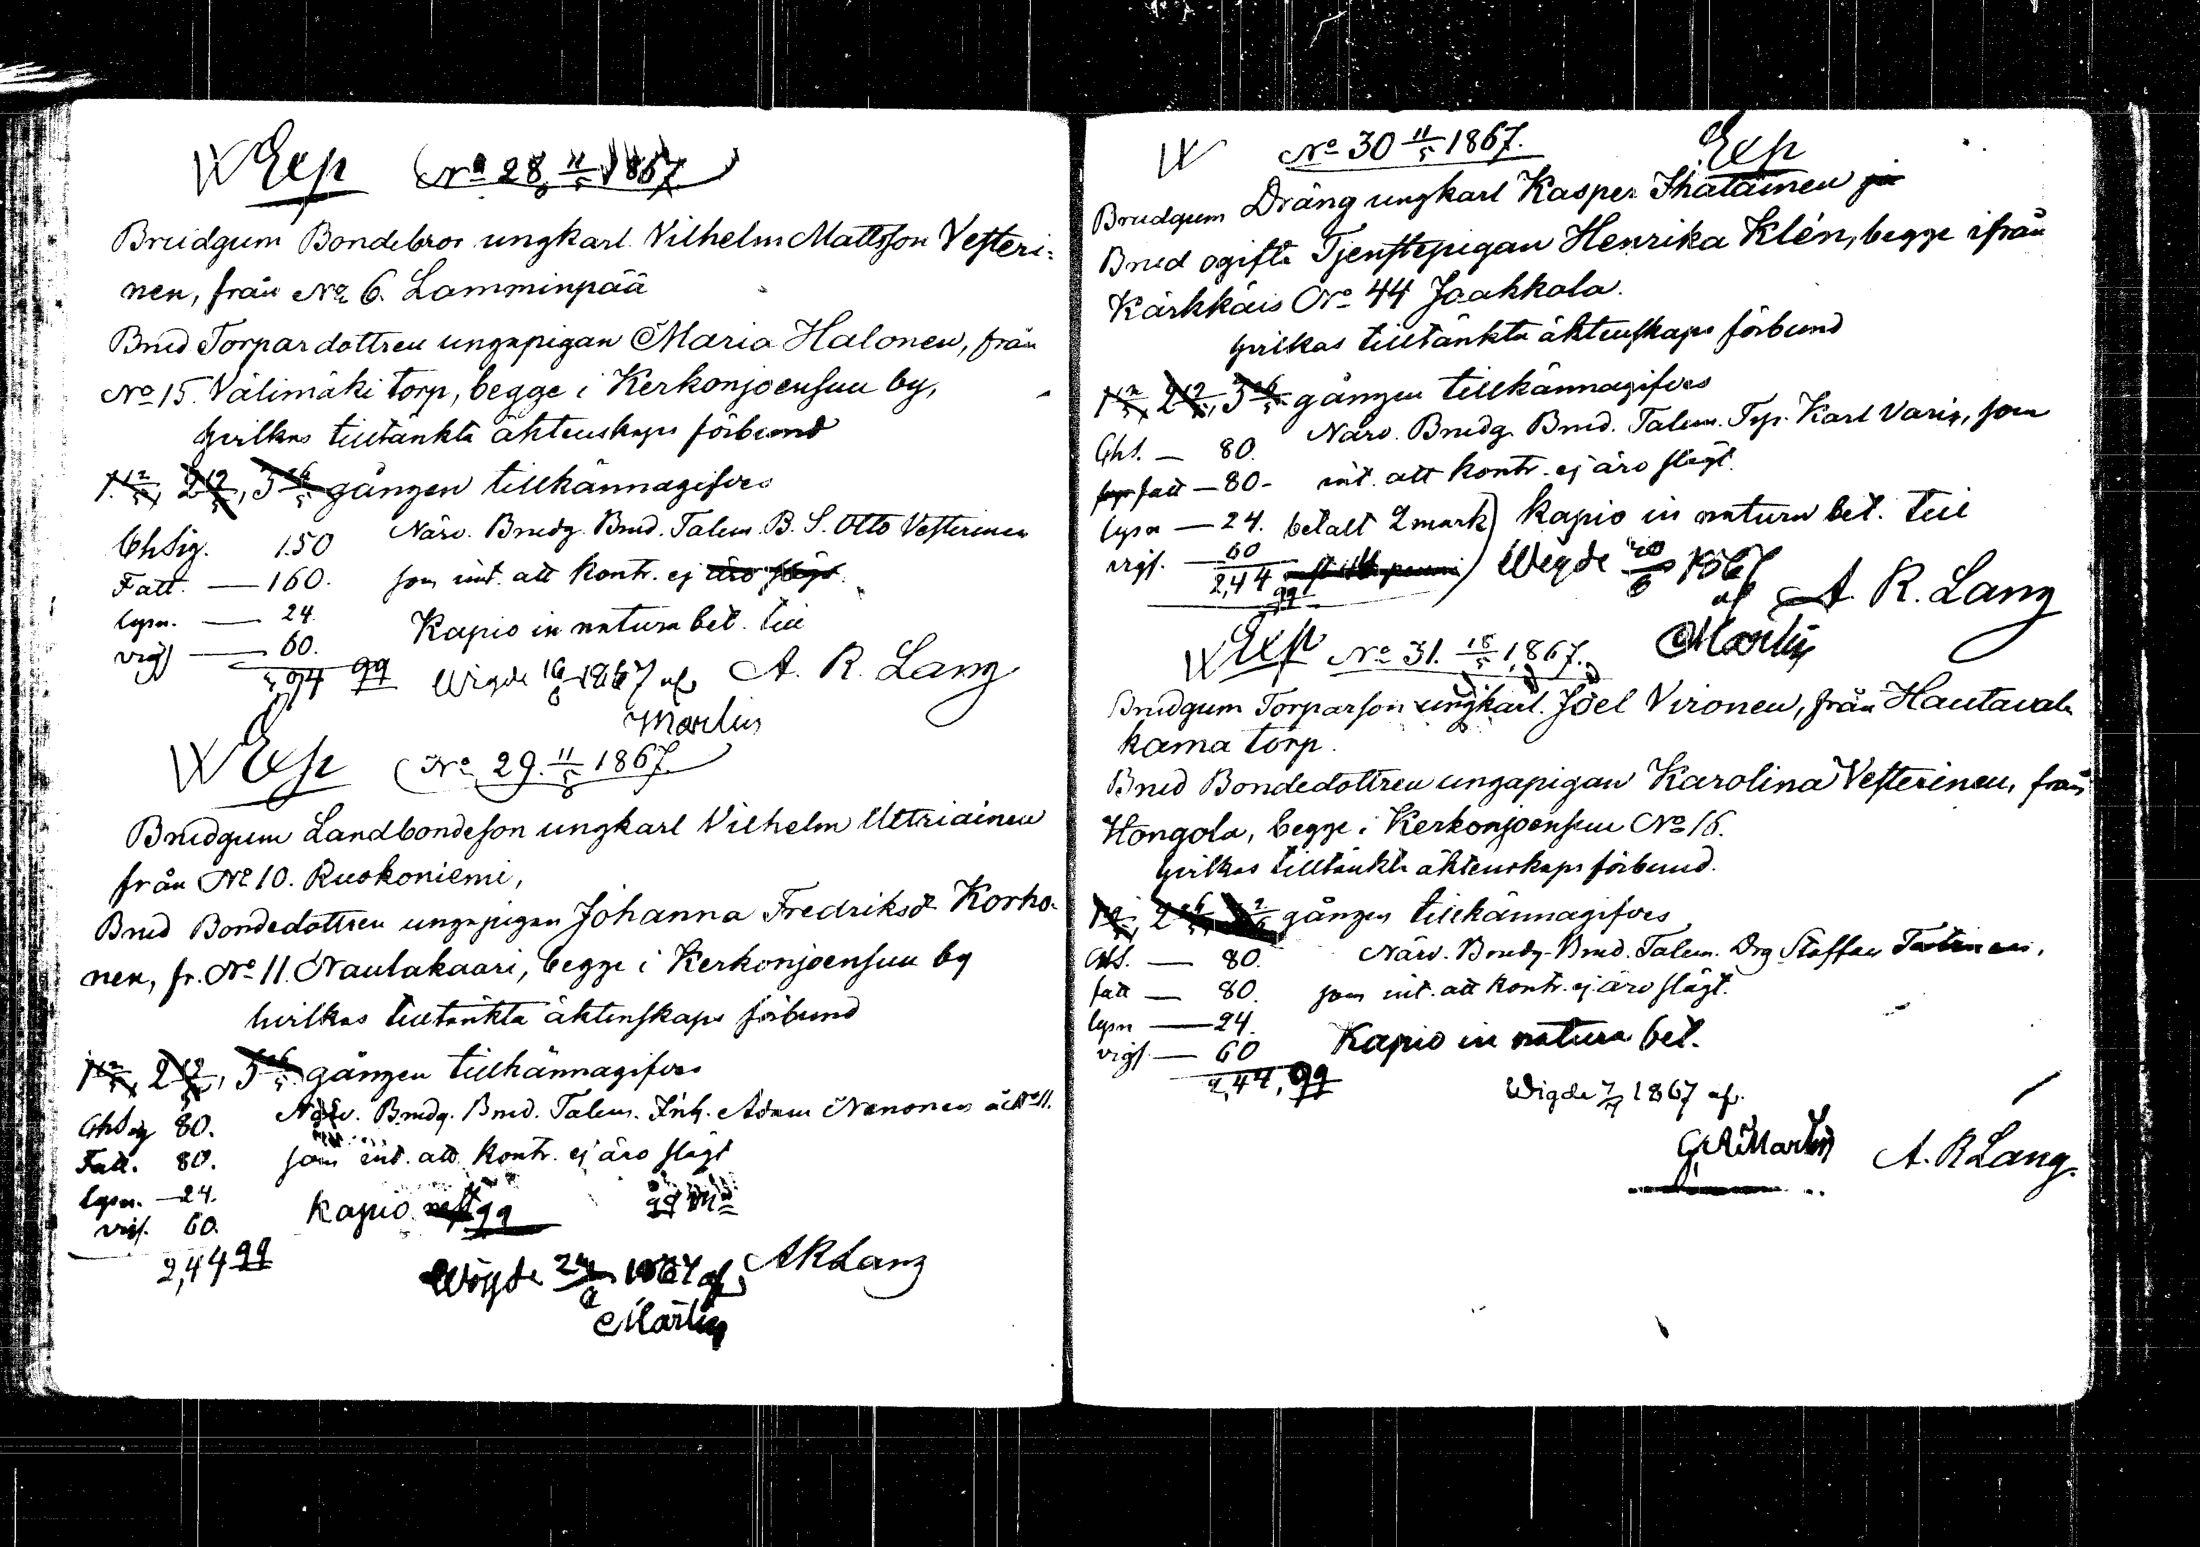 W Exp No 28 11/5 1867
Brudgum Bondebror ungkarl Vilhelm Mattsson Vesteri-
nen, från No 6. Lamminpää
Brud Torpardottren ungapigan Maria Halonen, från
No 15. Välimäki torp, begge i Kerkonjoensuu by,
hvilkas tilltänkta äktenskaps förbund
1. 12/5, 2 19/5, 3 26/5 gången tillkännagifves
Ghsig. 150 Närv. Brudg. Brud. Talem. B. S. Otto Vesterinen
Fatt. — 160. som int. att kontr. ej äro slägt.
lysn. — 24. Kapio in natura bet. till
vigs — 60.
99 Wigde 16/6 1867 af A. R. Lang
Martin
W Exp No 29. 11/5 1867.
Brudgum Landbondeson ungkarl Vilhelm Uttriainen
från No 10. Ruokoniemi,
Brud Bondedottren ungapigan Johanna Fredriksd. Korho-
nen, fr. No 11. Naulakaari, begge i Kerkonjoensuu by
hvilkas tilltänkta äktenskaps förbund
1 12/5, 2 19/5, 3 26/5 gången tillkännagifves
Ghsig 80. Närv. Brudg. Brud. Talem. Inh. Adam Nenonen å No 11.
Fatt. 80. som int. att kontr. ej äro slägt
lysn. — 24. Kapio 99
vigs. 60.
2,44 99
Wigde 1867 af A R Lang
Martin
W No 30 11/5 1867. Exp
Brudgum Dräng ungkarl Kasper Ihatainen
Brud ogifta Tjenstepigan Henrika Klén, begge ifrån
Kärkkäis No 44 Jaakkola.
hvilkas tilltänkta äktenskaps förbund
1 12/5, 2 19/5, 3 26/5 gången tillkännagifves
Ghs. — 80. Närv. Brudg. Brud. Talem. Trp. Karl Varis, som
fatt — 80 - int. att kontr. ej äro slägt.
lysn — 24. betalt 2 mark) Kapio in natura bet. till
vigs. — 60 Wigde 20/6 1867
2,44 99 af A. R. Lang
Martin
W Exp No 31. 18/5 1867.
Brudgum Torparson ungkarl. Joel Vironen, från Hautaval-
kama torp.
Brud Bondedottren ungapigan Karolina Vesterinen, från
Hongola, begge i Kerkonjoensuu No 16.
hvilkas tilltänkta äktenskaps förbund.
1 19/5, 2 26/5, 3 2/6 gången tillkännagifves
Ghs. — 80. Närv. Brudg. Brud. Talem. Drg Staffan
fatt — 80. som int. att kontr. ej äro slägt.
lysn — 24. Kapio in natura bet.
vigs. — 60
2,44, 99
Wigde 7/7 1867 af.
Martin A. R Lang.